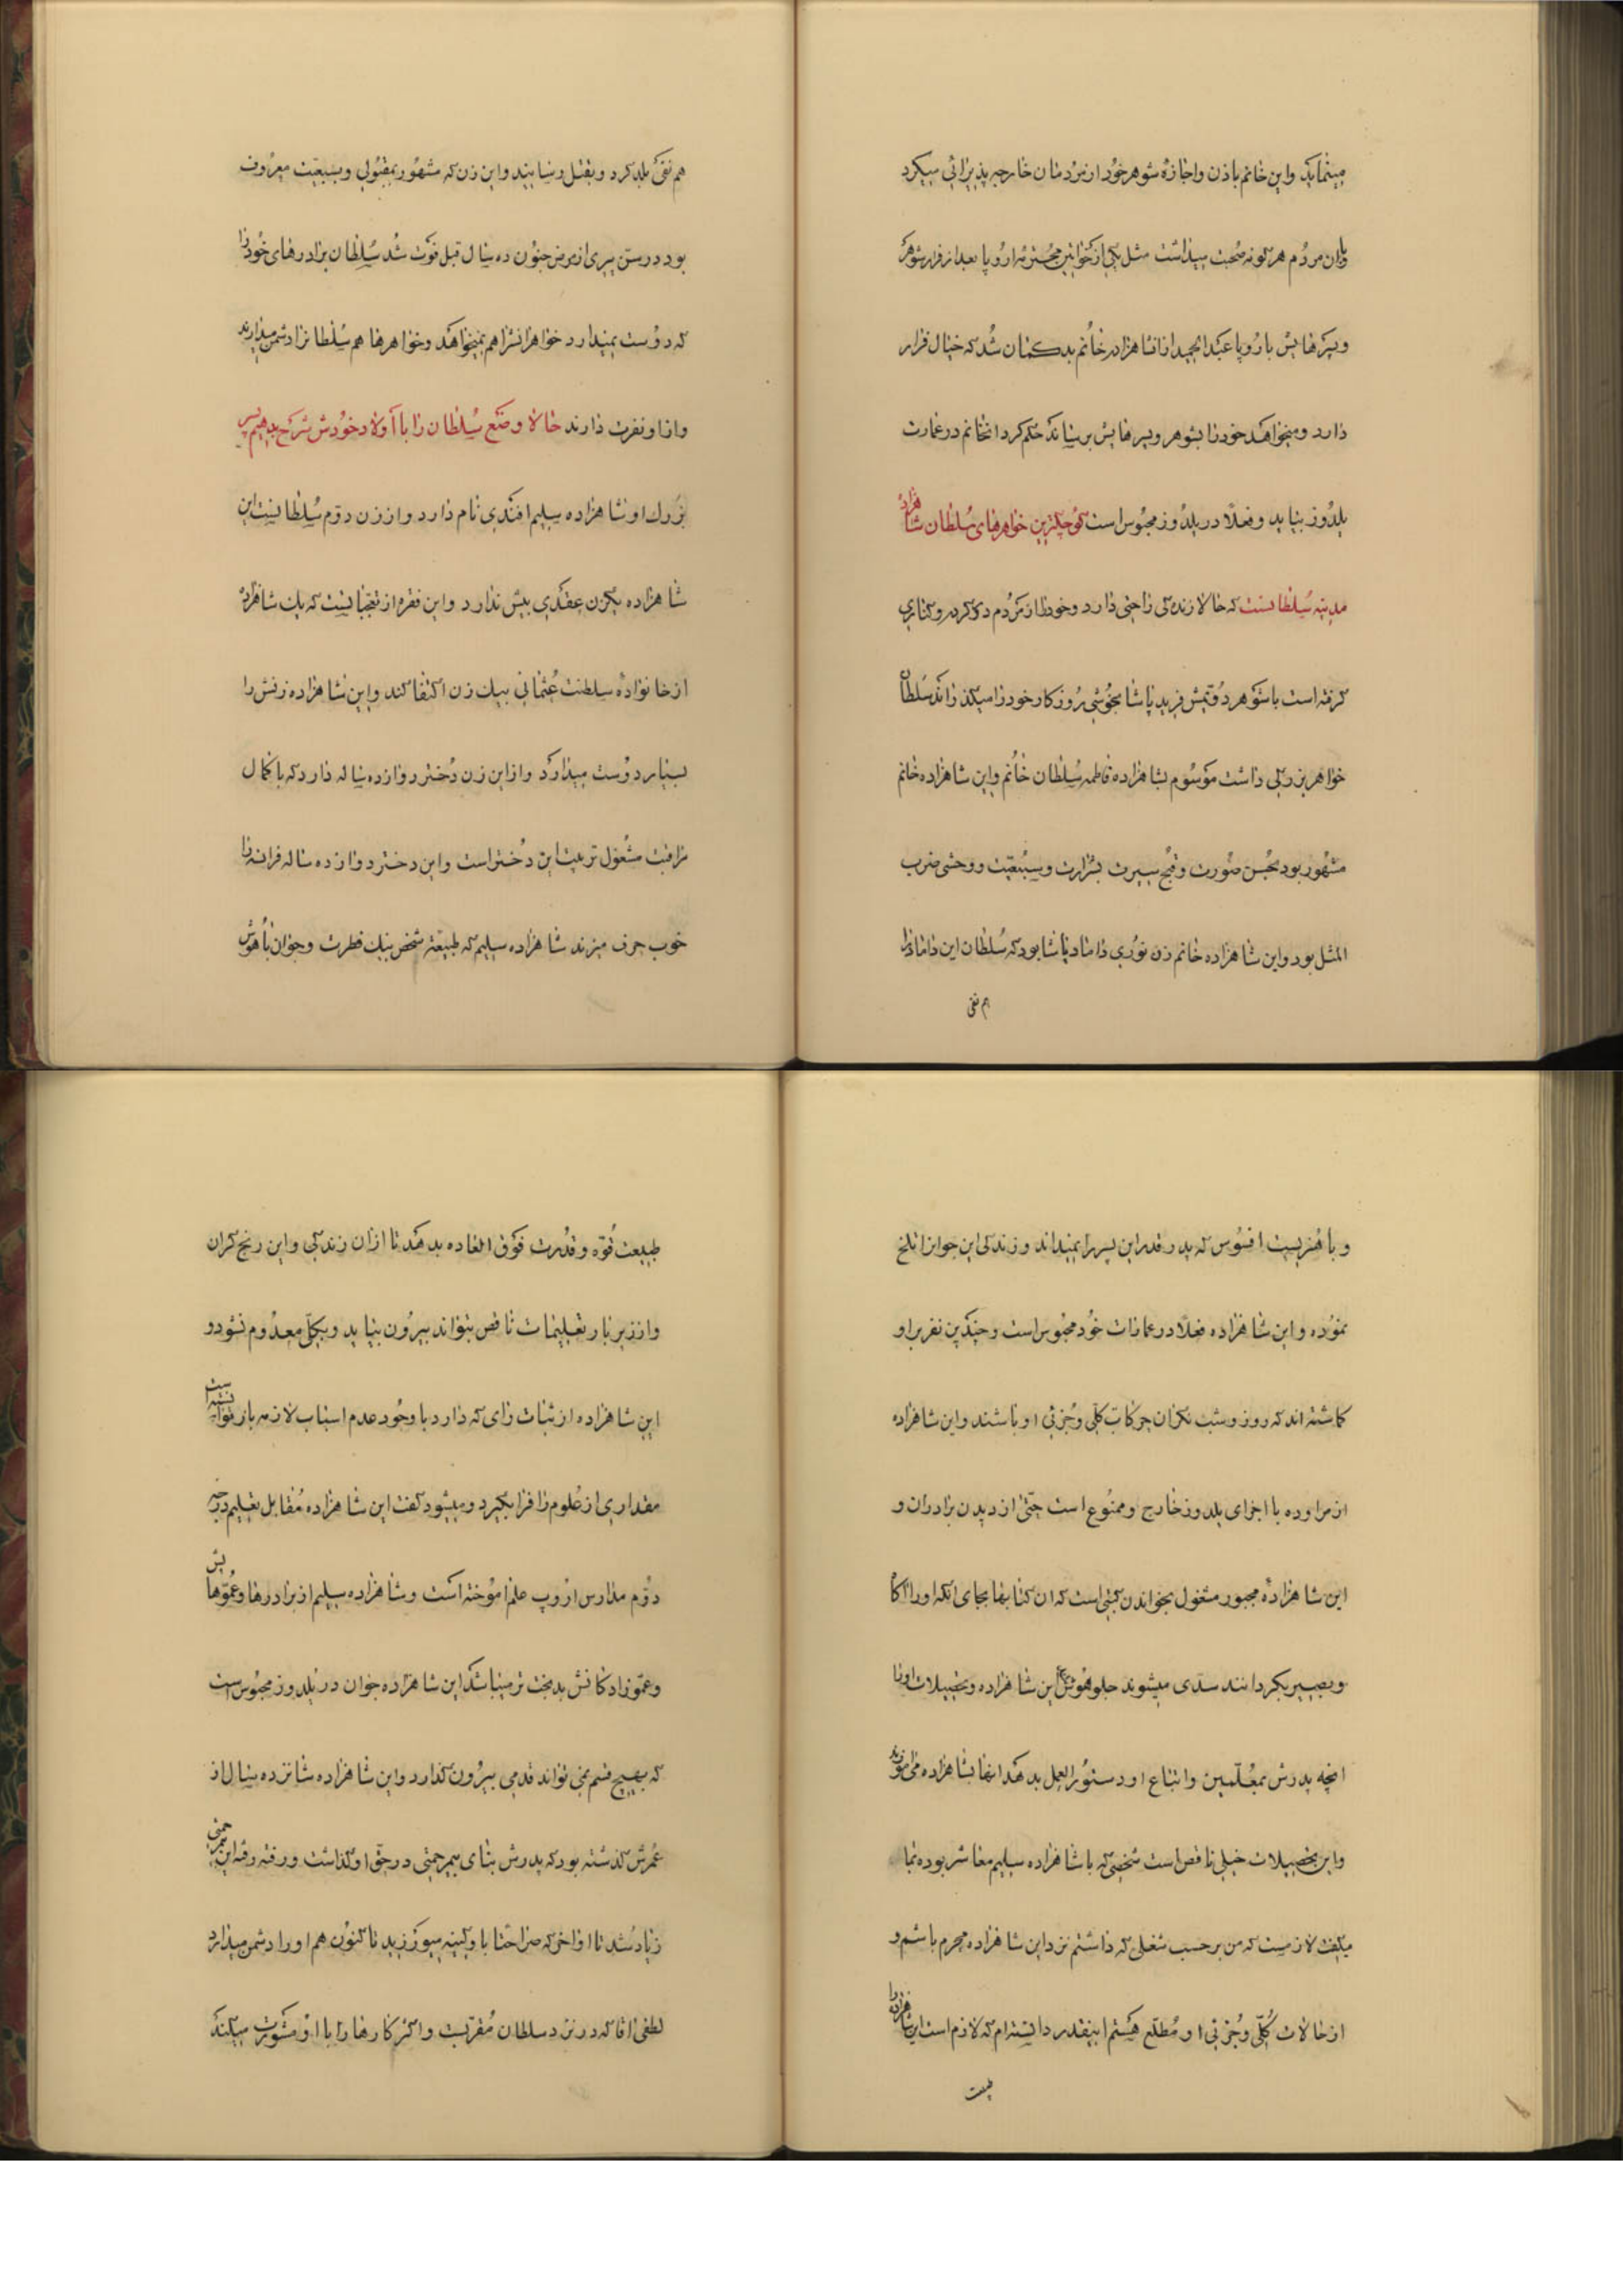 مینماید واین خانم باذن واجازه شوهر خود از مردمان خارجه پذیرائی میکرد
وبان مردم هرگونه صحبت میداشت مثل یکی از خواتین محترمه اروپا بعد از فرار شوهر
وپسرهایش باروپا عبدالحمید ازانشاهزاده خانم بدگمان شد که خیال فرار
دارد ومیخواهد خودرا بشوهر وپسرهایش برساند حکم کرد انخانم در عمارت
یلدوز بیاید وفعلا در یلدوز محبوس است کوچکترین خواهرهای سلطان شاهزاده
مدیته سلطانست که حالا زندگی راحتی دارد وخودرا از مردم دور کرده وکناری
گرفته است باشوهر دویمش فرید پاشا بخوشی روزگار خودرا میگذراند سلطان
خواهر بزرگی داشت موسوم بشاهزاده فاطمه سلطان خانم واین شاهزاده خانم
مشهور بود بحسن صورت وقبح سیرت بشرارت وسبعیت ووحشی ضرب
المثل بود واین شاهزاده خانم زن نوری داماد پاشا بود که سلطان این داماد را
هم نفی
هم نفی بلد کرد وبقتل رسانید واین زن که مشهور بمقبولی وبسبعیت معروف
بود در سن پیری از مرض جنون ده سال قبل فوت شد سلطان برادرهای خود را
که دوست نمیدارد خواهرانش را هم نمیخواهد وخواهرها هم سلطانرا دشمن میدارند
واز او نفرت دارند حالا وضع سلطان را با اولاد خودش شرح بدهیم پسر
بزرگ او شاهزاده سلیم افندی نام دارد واز زن دوم سلطانست این
شاهزاده یکزن عقدی بیش ندارد واین فقره از تعجباتست که یک شاهزاده
از خانواده سلطنت عثمانی بیک زن اکتفا کند واین شاهزاده زنش را
بسیار دوست میدارد واز این زن دختر دوازده ساله دارد که با کمال
مراقبت مشغول تربیت این دختر است واین دختر دوازده ساله فرانسه را
خوب حرف میزند شاهزاده سلیم که طبیعة شخص نیک فطرت وجوان باهوش
وباهنریست افسوس که پدر قدر این پسر را نمیداند وزندگی این جوانرا تلخ
نموده واین شاهزاده فعلا در عمارات خود محبوس است وچندین نفر بر او
گماشته اند که روز وشب نگران حرکات کلی وجزئی او باشند واین شاهزاده
از مراوده با اجزای یلدوز خارج وممنوع است حتی از دیدن برادران و
این شاهزاده مجبور مشغول بخواندن کتبی است که ان کتابها بجای انکه او را اگاه
وبصیر بگردانند سدی میشوند جلو هوش این شاهزاده وتحصیلات او با
انچه پدرش بمعلمین واتباع او دستورالعمل بدهد انها بشاهزاده می اموزند
واین تحصیلات خیلی ناقص است شخصی که با شاهزاده سلیم معاشر بوده بما
میگفت لازمست که من بر حسب شغلی که داشتم نزد این شاهزاده محرم باشم و
از حالات کلی وجزئی او مطلع هستم اینقدر دانسته ام که لازم است این شاهزاده را
طبیعت
طبیعت قوه وقدرت فوق العاده بدهد تا ازان زندگی واین رنج گران
واز زیر بار تعلیمات ناقص بتواند بیرون بیاید وبکلی معدوم نشود و
این شاهزاده از ثبات رای که دارد با وجود عدم اسباب لازمه باز توانسته است
مقداری از علوم را فرا بگیرد ومیشود گفت این شاهزاده مقابل تعلیم درجه
دوم مدارس اروپ علم اموخته است وشاهزاده سلیم از برادرها وعموهایش
وعموزادگانش بدبخت تر میباشد این شاهزاده جوان در یلدوز محبوس است
که بهیچ قسم نمی تواند قدمی بیرون گذارد واین شاهزاده شانزده سال از
عمرش گذشته بود که پدرش بنای بیرحمی در حق او گذاشت ورفته رفته این بیرحمی
زیاد شد تا اواخر که صراحتا با او کینه میورزید تا کنون هم او را دشمن میدارد
لطفی اقا که در نزد سلطان مقربست واکثر کارها را با او مشورت میکند